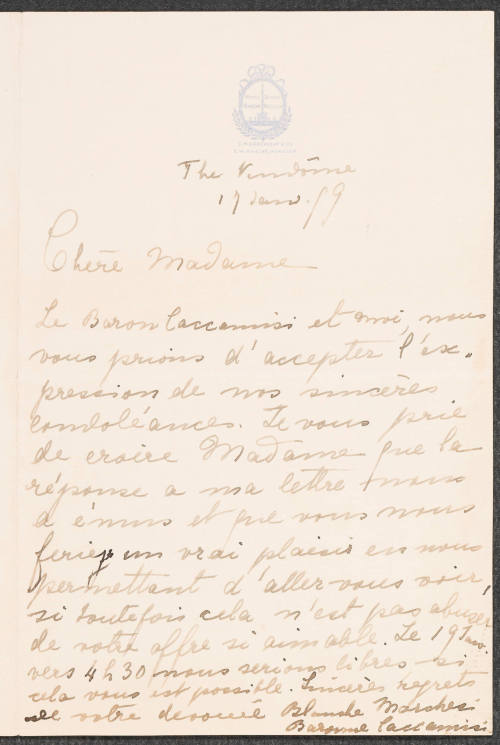 The Vendôme
17 Janv. 99
Chère Madame
Le Baron Caccamisi et moi, nous
vous prions d'accepter l'ex-
pression de nos sincères
condoléances. Je vous prie
de croire Madame que la
réponse a ma lettre nous
a émus et que vous nous
feriez un vrai plaisir en nous
permettant d'aller vous voir,
si toutefois cela n'est pas abuser
de votre offre si aimable. Le 19 Janv.
vers 4h30 nous serions libres si
cela vous est possible. Sincères regrets
de votre devouée Blanche Marchesi
Baronne Caccamisi